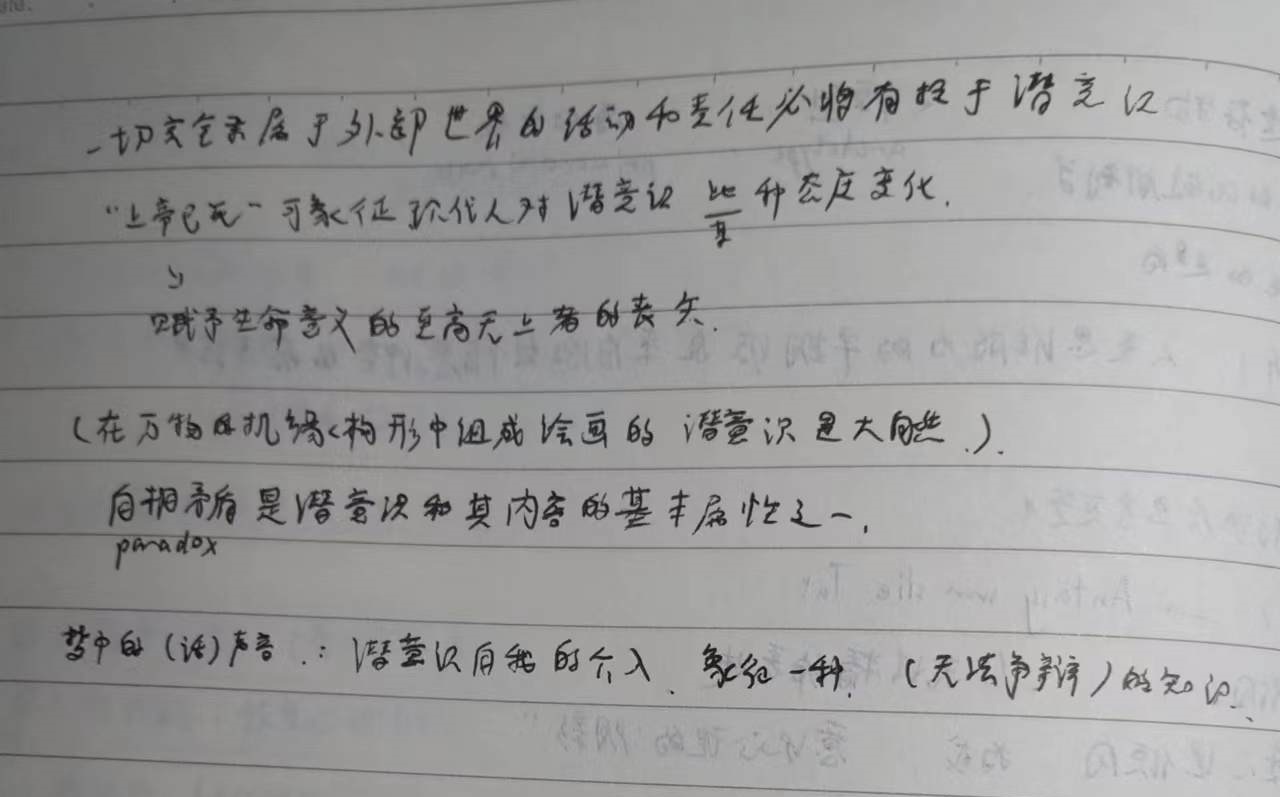 一切完全属于外部世界的活动和责任必将有损于潜意识
"上帝已死"可象征现代人对潜意识 此种态度变化.
其
↓
赋予生命意义的至高无上者的丧失.
(在万物的机缘构形中组成绘画的潜意识是大自然.).
自相矛盾是潜意识和其内容的基本属性之一,
paradox
梦中的(话)声音.:潜意识自我的介入、象征一种.(无法争辩)的知识、